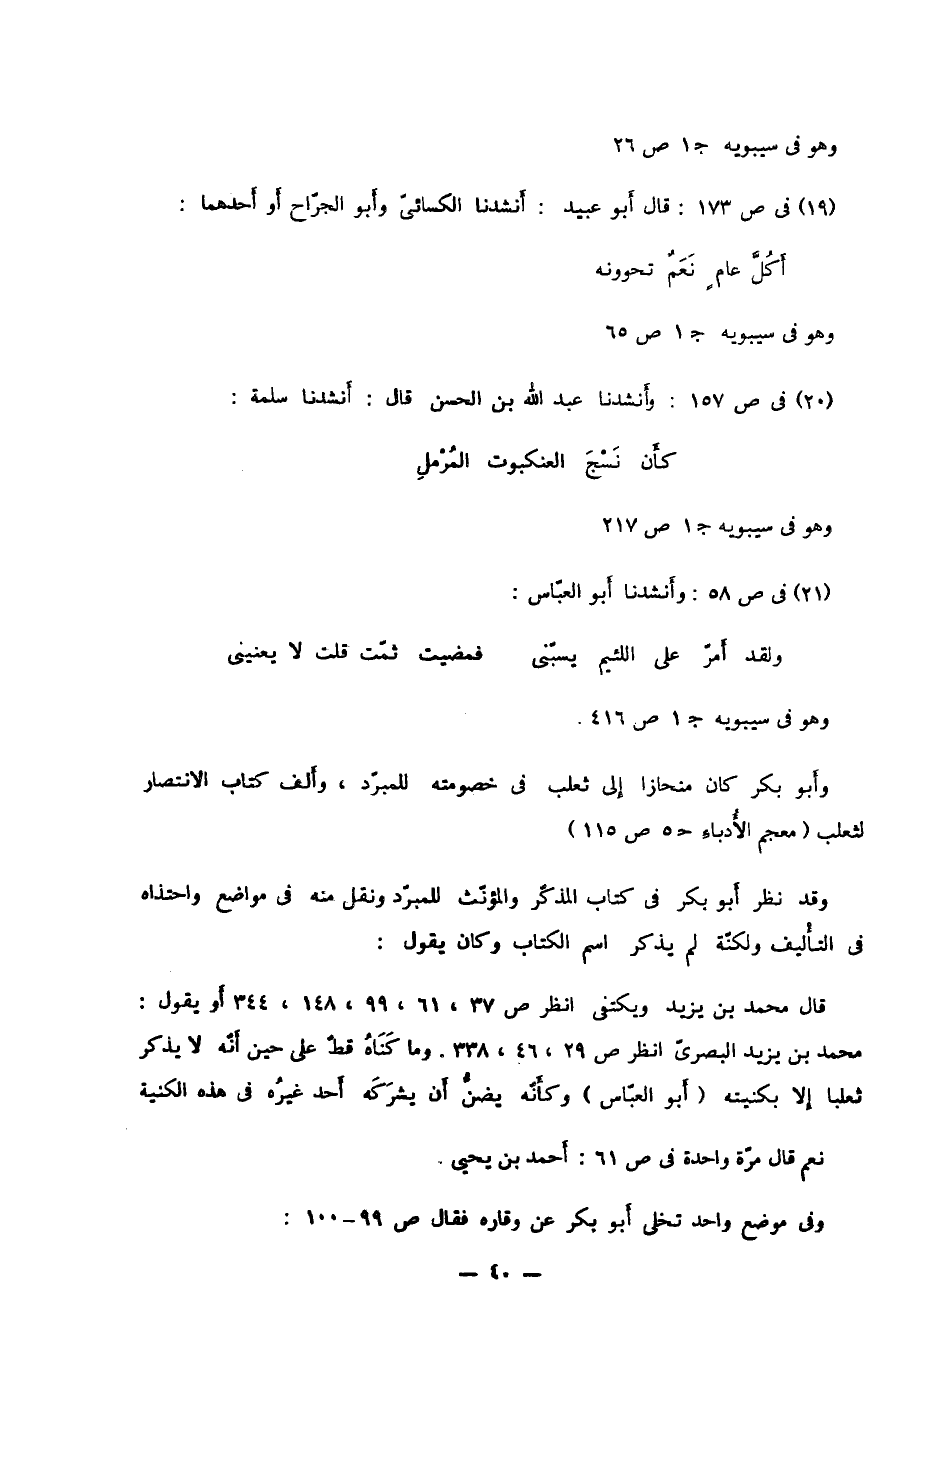 وهو فى سيبويه ج ١ ص ٢٦
(١٩) فى ص ١٧٣ : قال أبو عبيد : أنشدنا الكسائىّ وأبو الجرّاح أو أحدهما :
أَكُلَّ عامٍ نَعَمٌ تحوونه
وهو فى سيبويه ج ١ ص ٦٥
(٢٠) فى ص ١٥٧ : وأنشدنا عبد الله بن الحسن قال : أنشدنا سلمة :
كأَن نَسْجَ العنكبوت المُرْملِ
وهو فى سيبويه ج ١ ص ٢١٧
(٢١) فى ص ٥٨ : وأنشدنا أبو العبّاس :
ولقد أمرّ على اللئيم يسبّنى فمضيت ثمّت قلت لا يعنينى
وهو فى سيبويه ج ١ ص ٤١٦ .
وأبو بكر كان منحازا إلى ثعلب فى خصومته للمبرّد ، وألف كتاب الانتصار
لثعلب ( معجم الأُدباء ح ٥ ص ١١٥ )
وقد نظر أبو بكر فى كتاب المذكّر والمؤنّث للمبرّد ونقل منه فى مواضع واحتذاه
فى التأْليف ولكنّة لم يذكر اسم الكتاب وكان يقول :
قال محمد بن يزيد ويكتفى انظر ص ٣٧ ، ٦١ ، ٩٩ ، ١٤٨ ، ٣٤٤ أو يقول :
محمد بن يزيد البصرىّ انظر ص ٢٩ ، ٤٦ ، ٣٣٨ . وما كَنَاهُ قطّ على حين أنّه لا يذكر
ثعلبا إلا بكنيته ( أبو العبّاس ) وكأَنّه يضنُّ أن يشرَكَه أحد غيرُه فى هذه الكنية
نعم قال مرّة واحدة فى ص ٦١ : أحمد بن يحيى .
وفى موضع واحد تخلى أبو بكر عن وقاره فقال ص ٩٩ – ١٠٠ :
— ٤٠ —